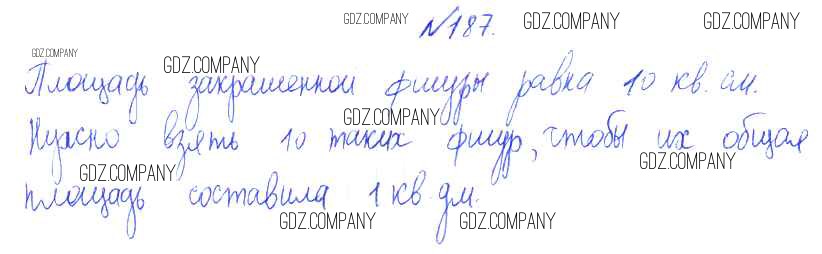 GDZ.COMPANY №187. GDZ.COMPANY GDZ.COMPANY
GDZ.COMPANY GDZ.COMPANY
Площадь закрашенной фигуры равна 10 кв. см.
GDZ.COMPANY
Нужно взять 10 таких фигур, чтобы их общая
GDZ.COMPANY GDZ.COMPANY
площадь составила 1 кв. дм.
GDZ.COMPANY GDZ.COMPANY